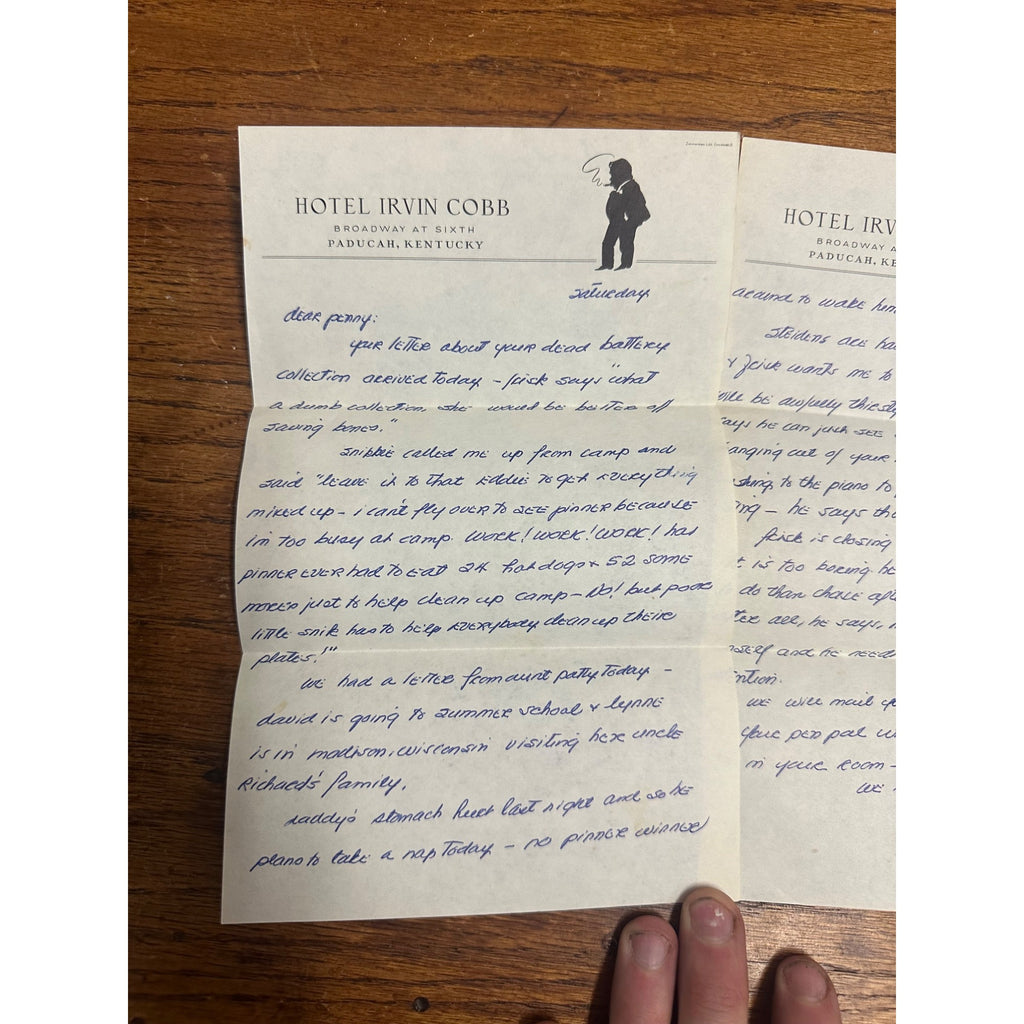 HOTEL IRVIN COBB
BROADWAY AT SIXTH
PADUCAH, KENTUCKY
Saturday
Dear Penny:
Your letter about your dead battery
collection arrived today – Frisk says "what
a dumb collection. She would be better off
saving bones."
Snibbie called me up from camp and
said "leave it to that Eddie to get everything
mixed up – I can't fly over to see Pinner because
I'm too busy at camp. Work! Work! Work! Has
Pinner ever had to eat 24 hot dogs & 52 some
mores just to help clean up camp – No! but poor
little Snib has to help everybody clean up their
plates!"
We had a letter from Aunt Patty today –
David is going to summer school & Lynne
is in Madison, Wisconsin visiting her uncle
Richard's family.
Daddy's stomach hurt last night and so he
plans to take a nap today – no Pinner Winner
HOTEL IRV
BROADWAY A
PADUCAH, KE
around to wake him
Steidens are ha
& Frisk wants me to
will be awfully thirsty
says he can just see
anging out of your
shing to the piano to
ing – he says tha
Frisk is closing
t is too boring he
do than chase aft
ter all, he says,
mself and he need
ention.
We will mail y
your pen pal w
in your room –
We